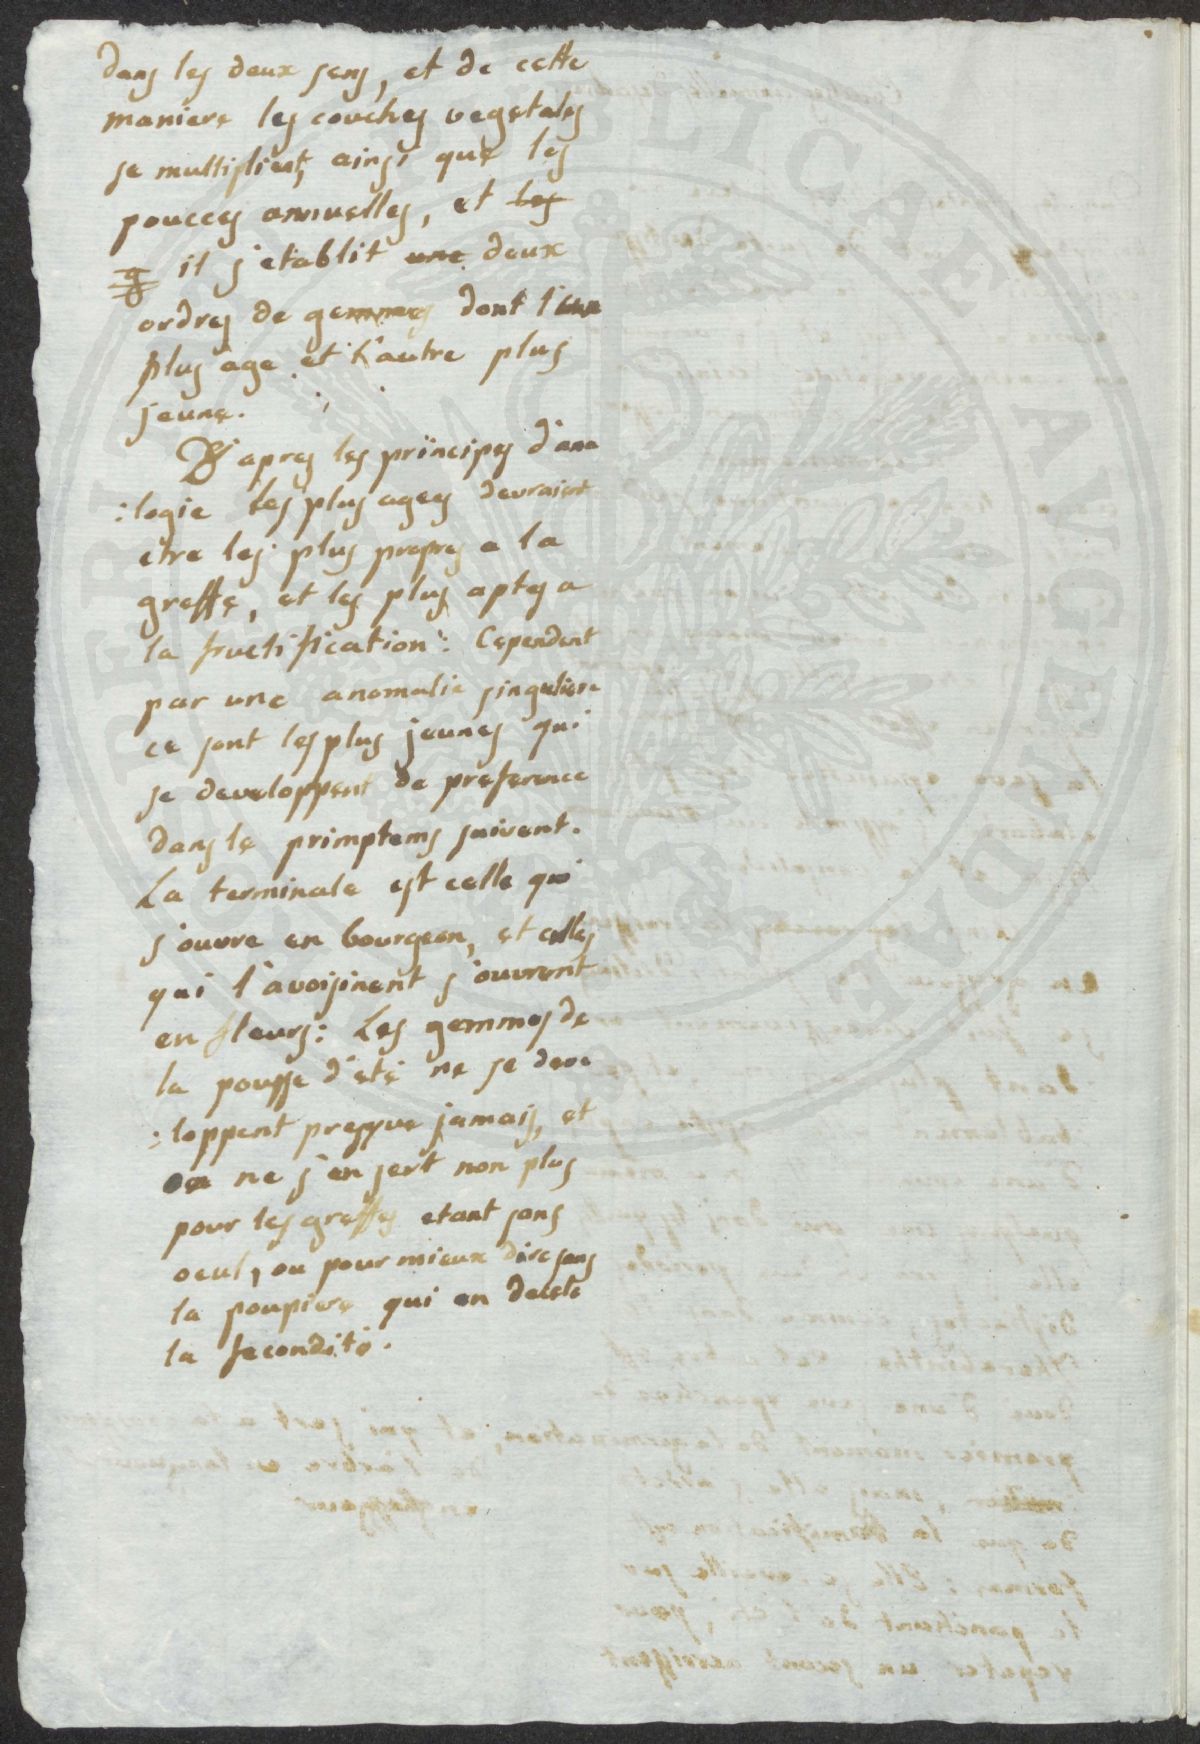 dans les deux sens, et de cette
maniere les couches vegetales
se multiplient, ainsi que les
poucces annuelles, et les
il s'etablit une deux
ordres de gemmes dont l'une
plus age et l'autre plus
jeune.
D'apres les principes d'ana
:logie les plus agees devraient
etre les plus propres a la
greffe, et les plus aptes a
la fructification: Cependent
par une anomalie singuliere
ce sont les plus jeunes qui
se developpent de preference
dans le primptems suivent.
La terminale est celle qui
s'ouvre en bourgeon, et celles
qui l'avoisinent s'ouvrent
en fleurs: Les gemmes de
la pousse d'eté ne se deve
:loppent presque jamais, et
on ne s'en sert non plus
pour les greffes etant sans
oeul, ou pour mieux dire sans
la poupiere qui en decele
la fecondité.